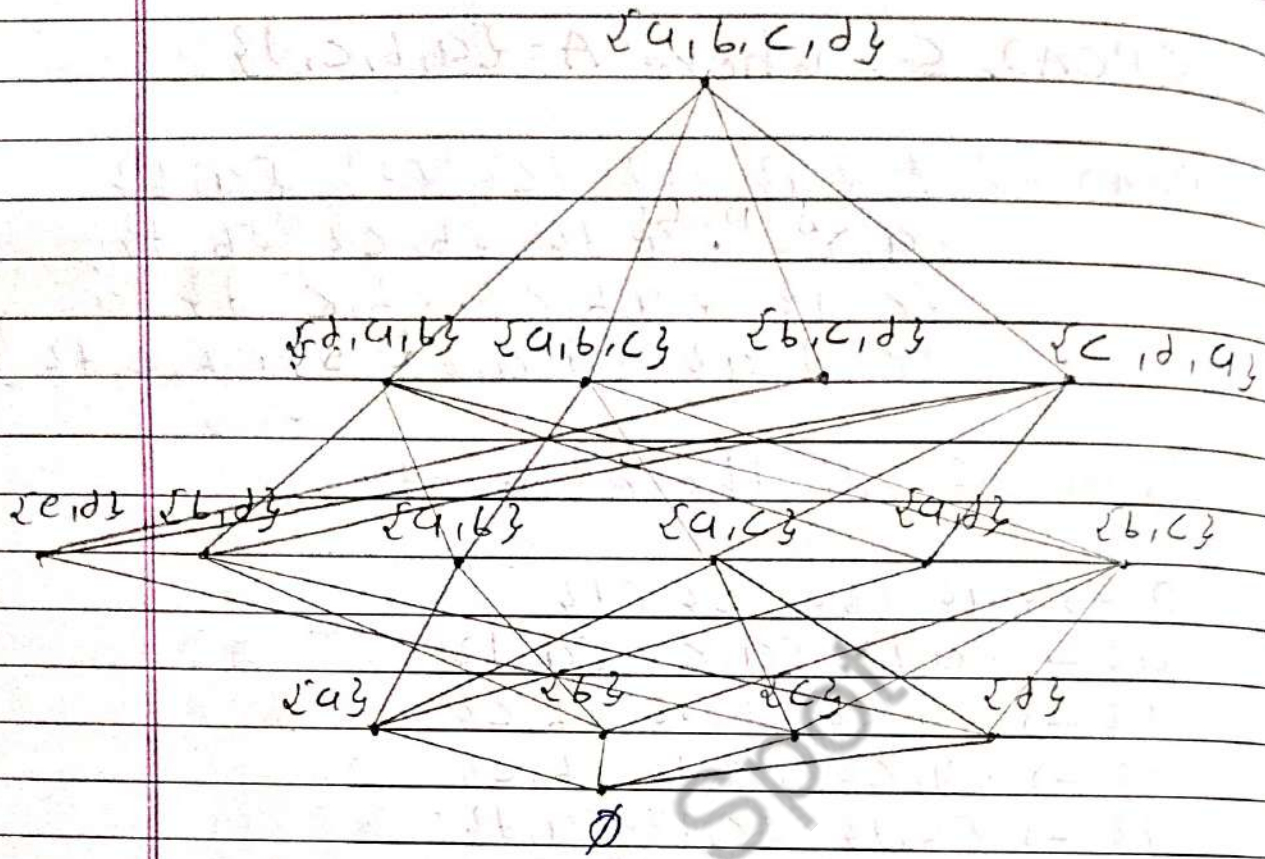 {a, b, c, d}
{d, a, b} {a, b, c} {b, c, d} {c, d, a}
{c, d} {b, d} {a, b} {a, c} {a, d} {b, c}
{a} {b} {c} {d}
Spot
∅